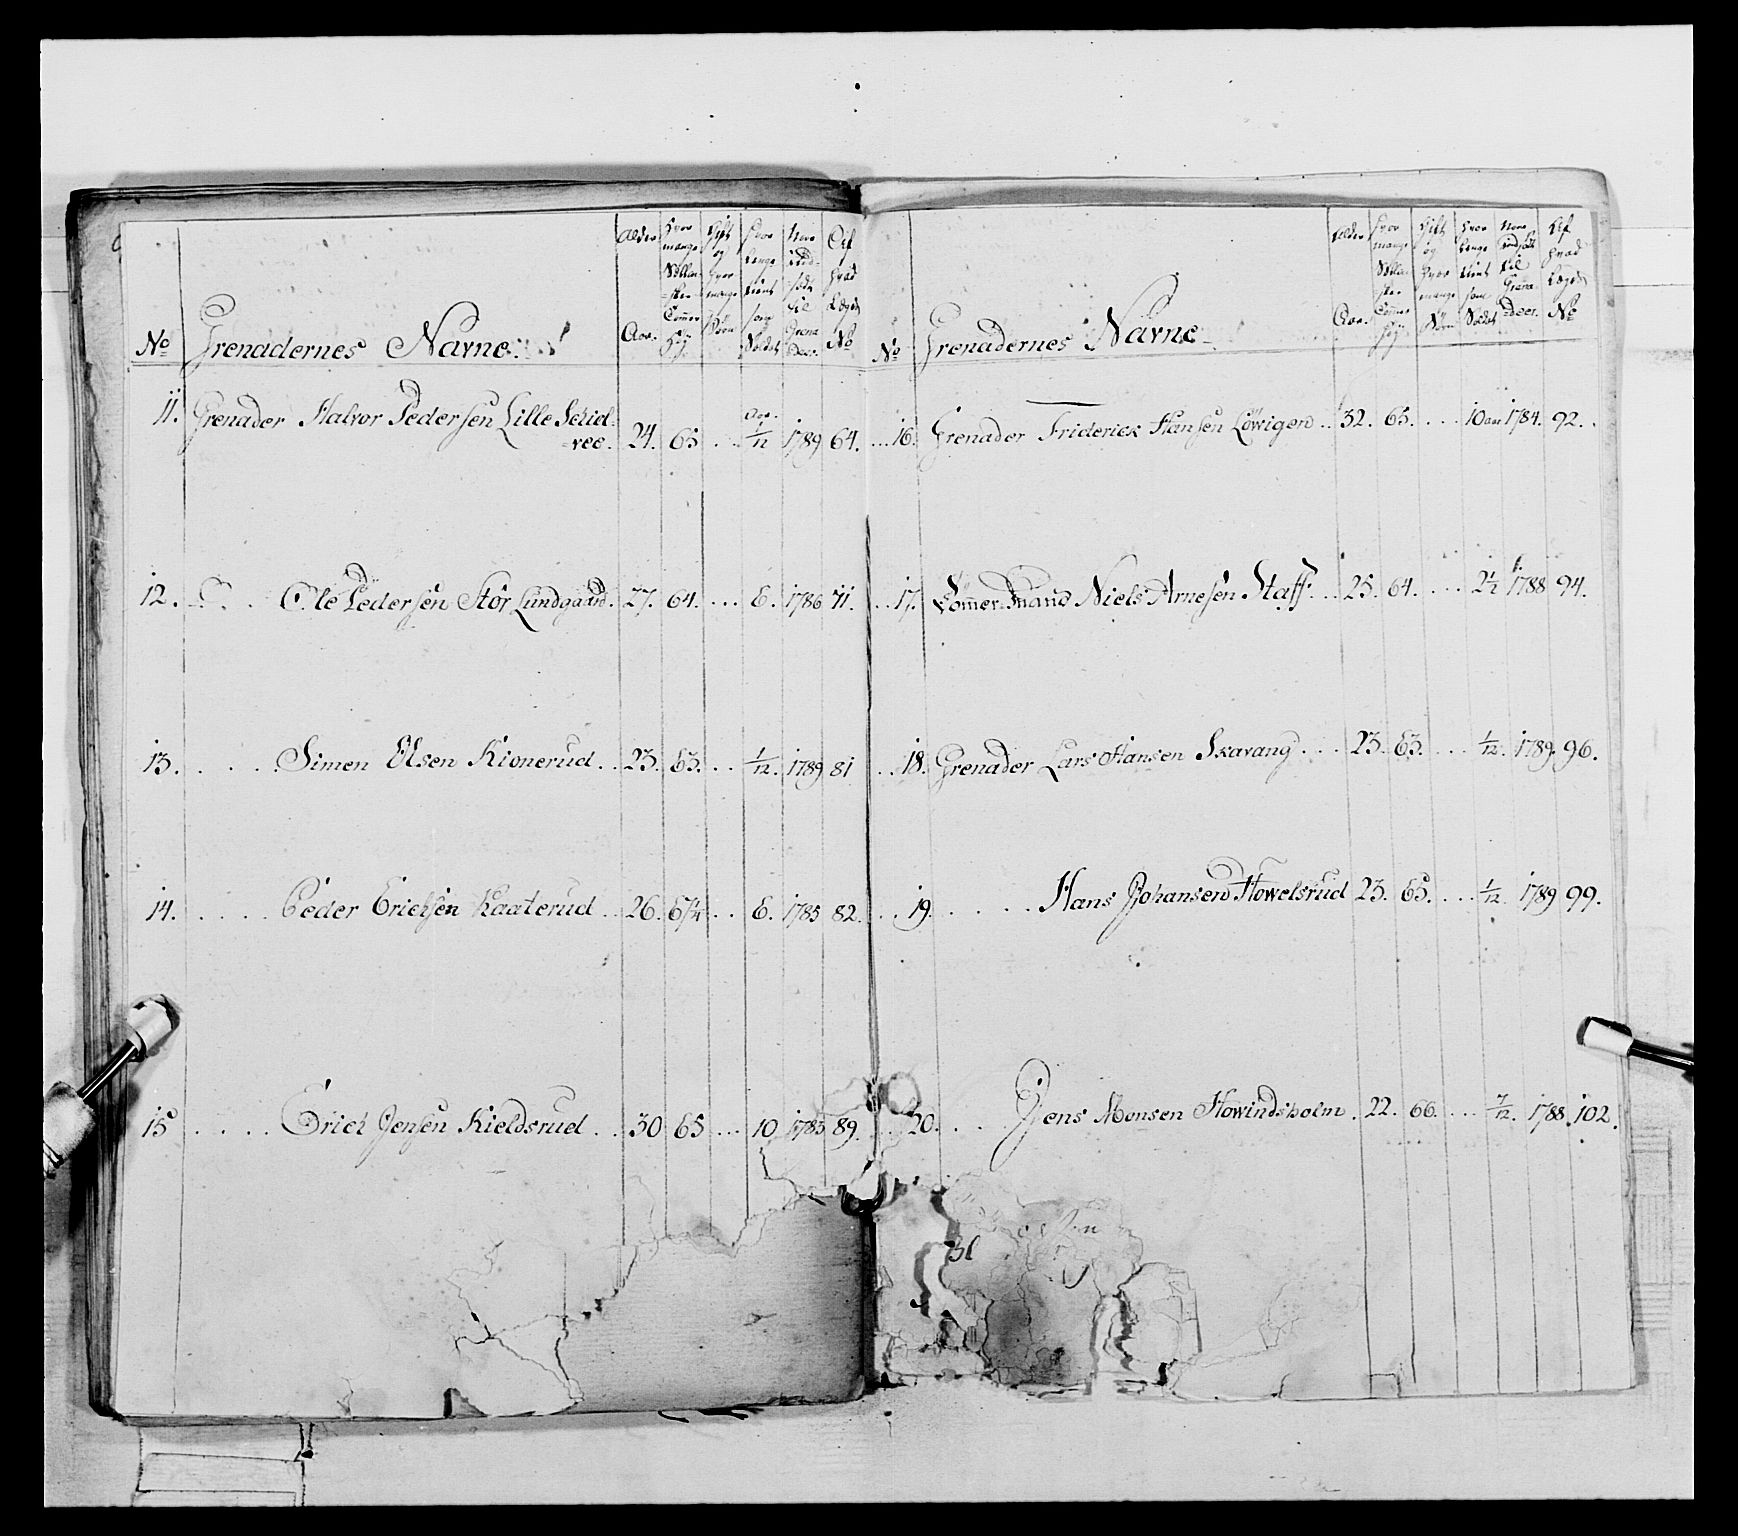 No
Grenadernes Navne
Alder
Aar.
Hvor
mange
Siællan
dske
Tommer
Høy.
Gift
og
Hvor
mange
Børn
Hvor
Længe
tient
som
Soldat
Naar
Ud-
sadt
til
Grena
deer.
Af
hvad
Lægd
No
11. Grenader Halvor Pedersen Lille Schiel-
vee. 24. 65 ... Aar. 1/12 1789 64.
12. D. . Ole Pedersen Stor Lundgaard. 27. 64. ... 6. 1786 71.
13. . . . . Simen Olsen Kionerud . . 23. 63. . . 1/12. 1789 81
14. . . . . Peder Erichsen Kaaterud . . 26. 67/4 . . 6. 1785 82.
15 . . . . Erich Jensen Kieldsrud . . 30 65 ... 10 1785 89.
No
Grenadernes Navne
Alder
Aar.
Hvor
mange
Siællan
dske
Tommer
Høy
Gift
og
Hvor
mange
Børn
Hvor
Længe
tient
som
Soldat
Naar
Udsatt
til
Grena
deer.
Af
hvad
Lægd
No
16. Grenader Friderick Hansen Löwigen .. 32. 65. . . . 10 aar 1784. 92.
17. Tömmermand Niels Arnesen Staff. . . 25. 64. . . . 2 1/2 1788 94.
18. Grenader Lars Hansen Skavang . . . 23. 63. . . . 1/12. 1789. 96.
19. . . . . Hans Johansen Howelsrud 23. 65. . . . 1/12. 1789 99.
20. . . . Jens Monsen Howindsholm . 22. 66. . . . 7/12. 1788. 102.